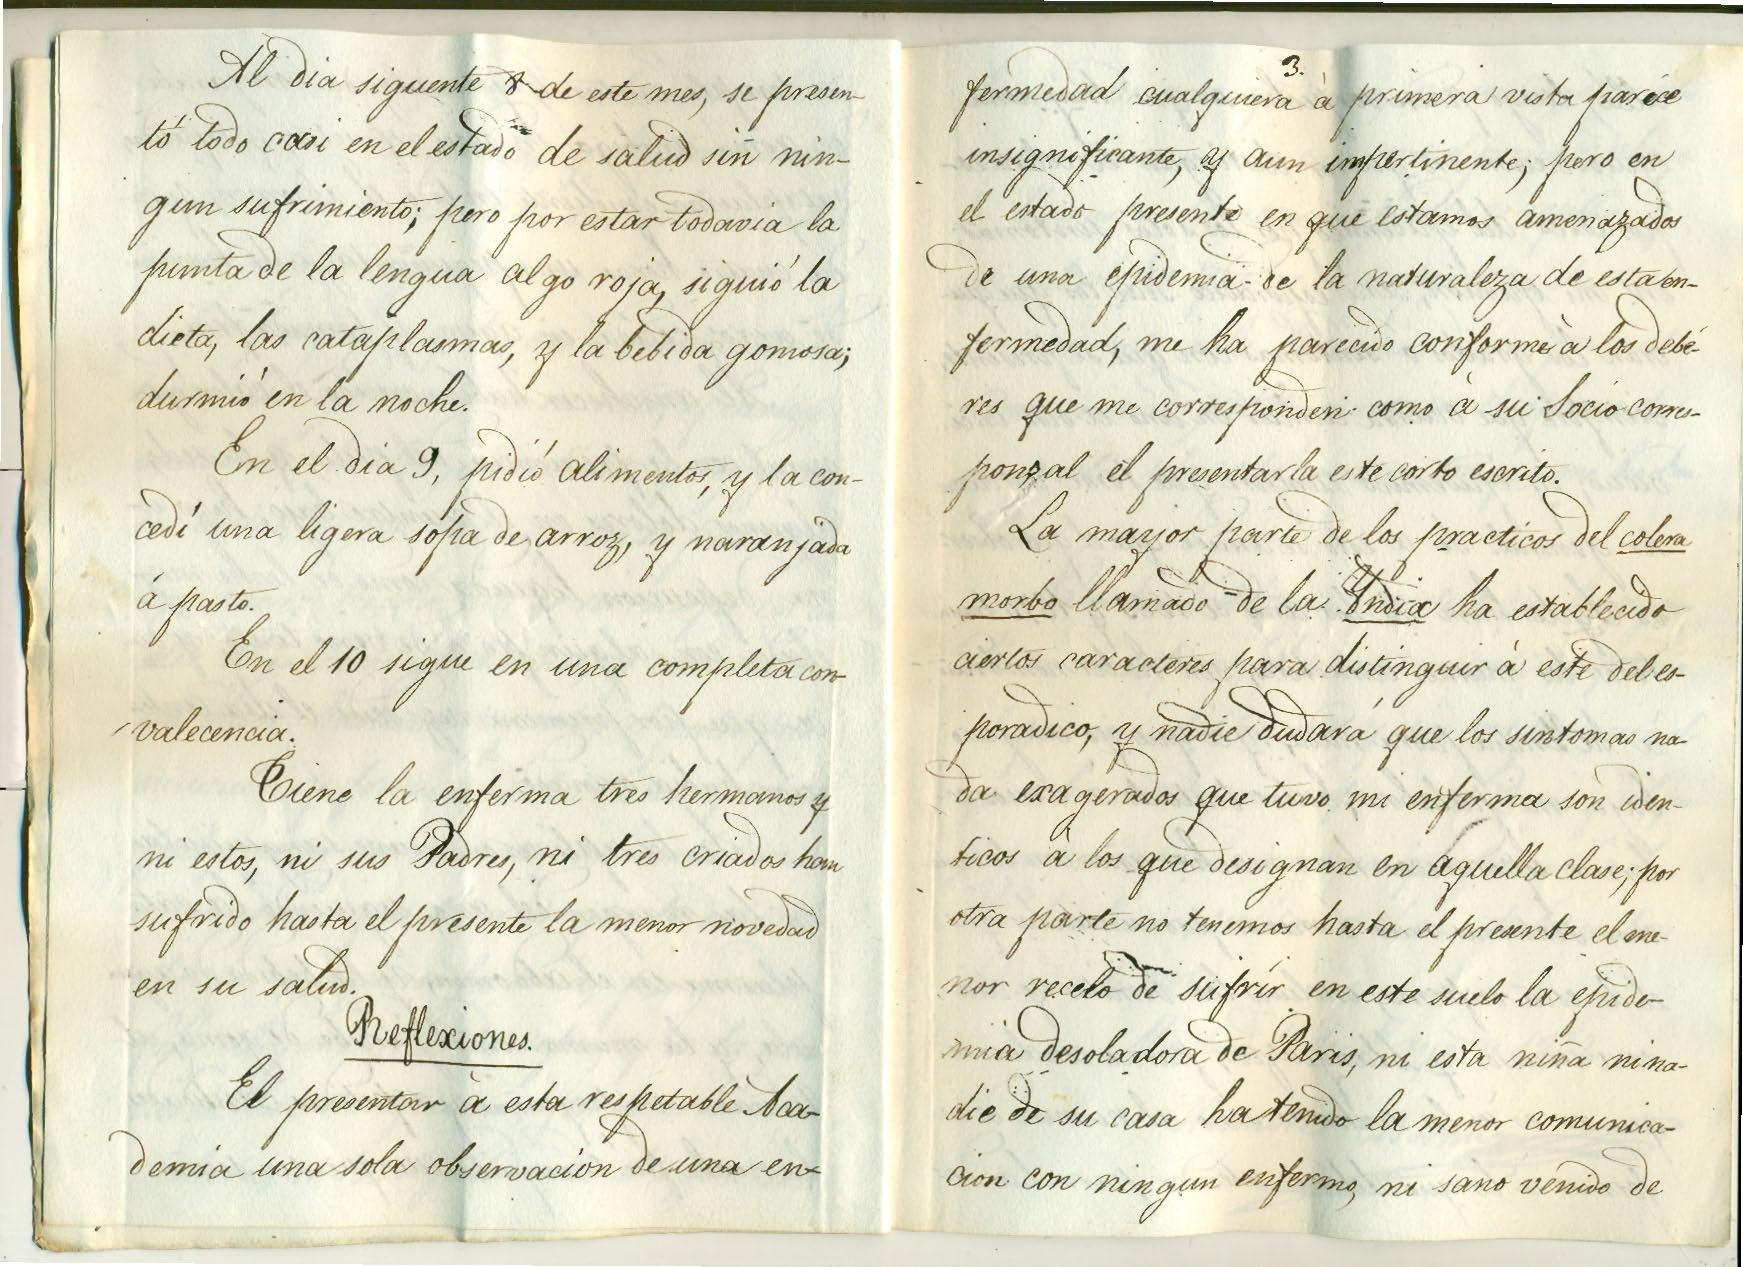 Al dia siguente 8 de este mes, se presen-
tó todo casi en el estado de salud sin nin-
gun sufrimiento; pero por estar todavia la
punta de la lengua algo roja, siguió la
dieta, las cataplasmas, y la bebida gomosa;
durmió en la noche.
En el dia 9, pidió alimentos, y la con-
cedí una ligera sopa de arroz, y naranjada
á pasto.
En el 10 sigue en una completa con-
valecencia.
Tiene la enferma tres hermanos y
ni estos, ni sus Padres, ni tres criados han
sufrido hasta el presente la menor novedad
en su salud.
Reflexiones.
El presentar à esta respetable Aca-
demia una sola observacion de una en-
3.
fermedad cualquiera à primera vista parece
insignificante, y aun impertinente; pero en
el estado presente en que estamos amenazados
de una epidemia de la naturaleza de esta en-
fermedad, me ha parecido conforme à los debe-
res que me corresponden como à su Socio corres-
ponsal el presentarla este corto escrito.
La mayor parte de los practicos del colera
morbo llamado de la Yndia ha establecido
ciertos caracteres para distinguir à este del es-
poradico, y nadie dudará que los sintomas na-
da exagerados que tuvo mi enferma son iden-
ticos à los que designan en aquella clase; por
otra parte no tenemos hasta el presente el me-
nor recelo de sufrir en este suelo la epide-
mia desoladora de Paris, ni esta niña ni na-
die de su casa ha tenido la menor comunica-
cion con ningun enfermo, ni sano venido de